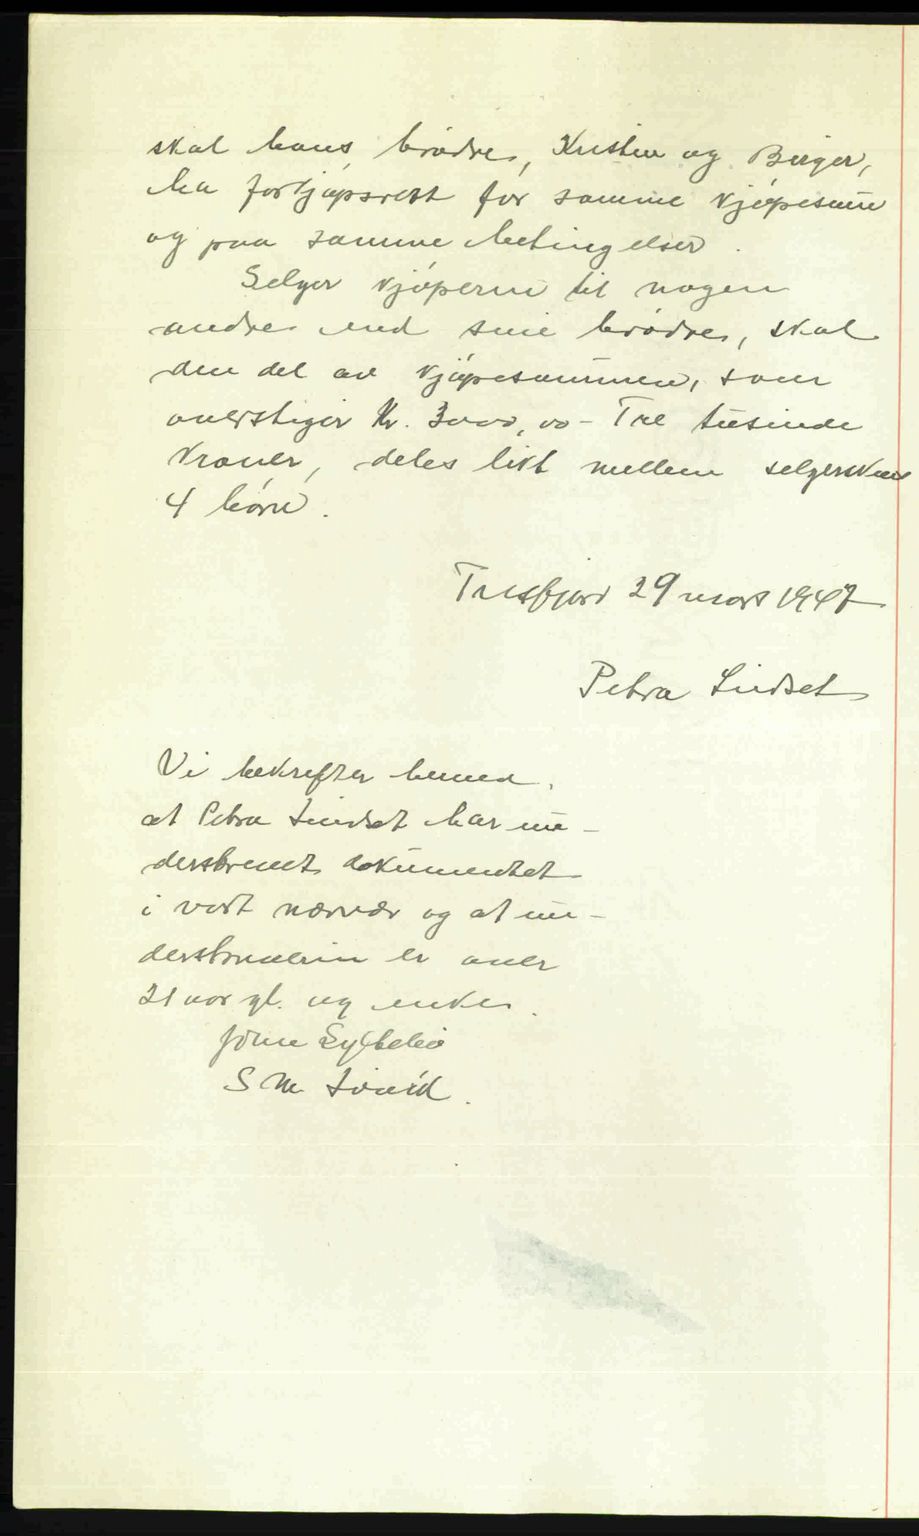 skal hans brødre, Kristen og Birger,
ha forkjøpsrett for samme kjøpesum
og paa samme betingelser.
Selger kjøperen til nogen
andre end sine brødre, skal
den del av kjøpesummen, som
overstiger Kr. 3000,00 - Tre tusinde
kroner, deles likt mellem selgerskens
4 børn.
Tresfjord 29 mars 1947
Petra Lindset
Vi bekrefter herved,
at Petra Lindset har un-
derskrevet dokumentet
i vort nærvær og at un-
derskriverin er over
21 aar gl. og enke.
S M